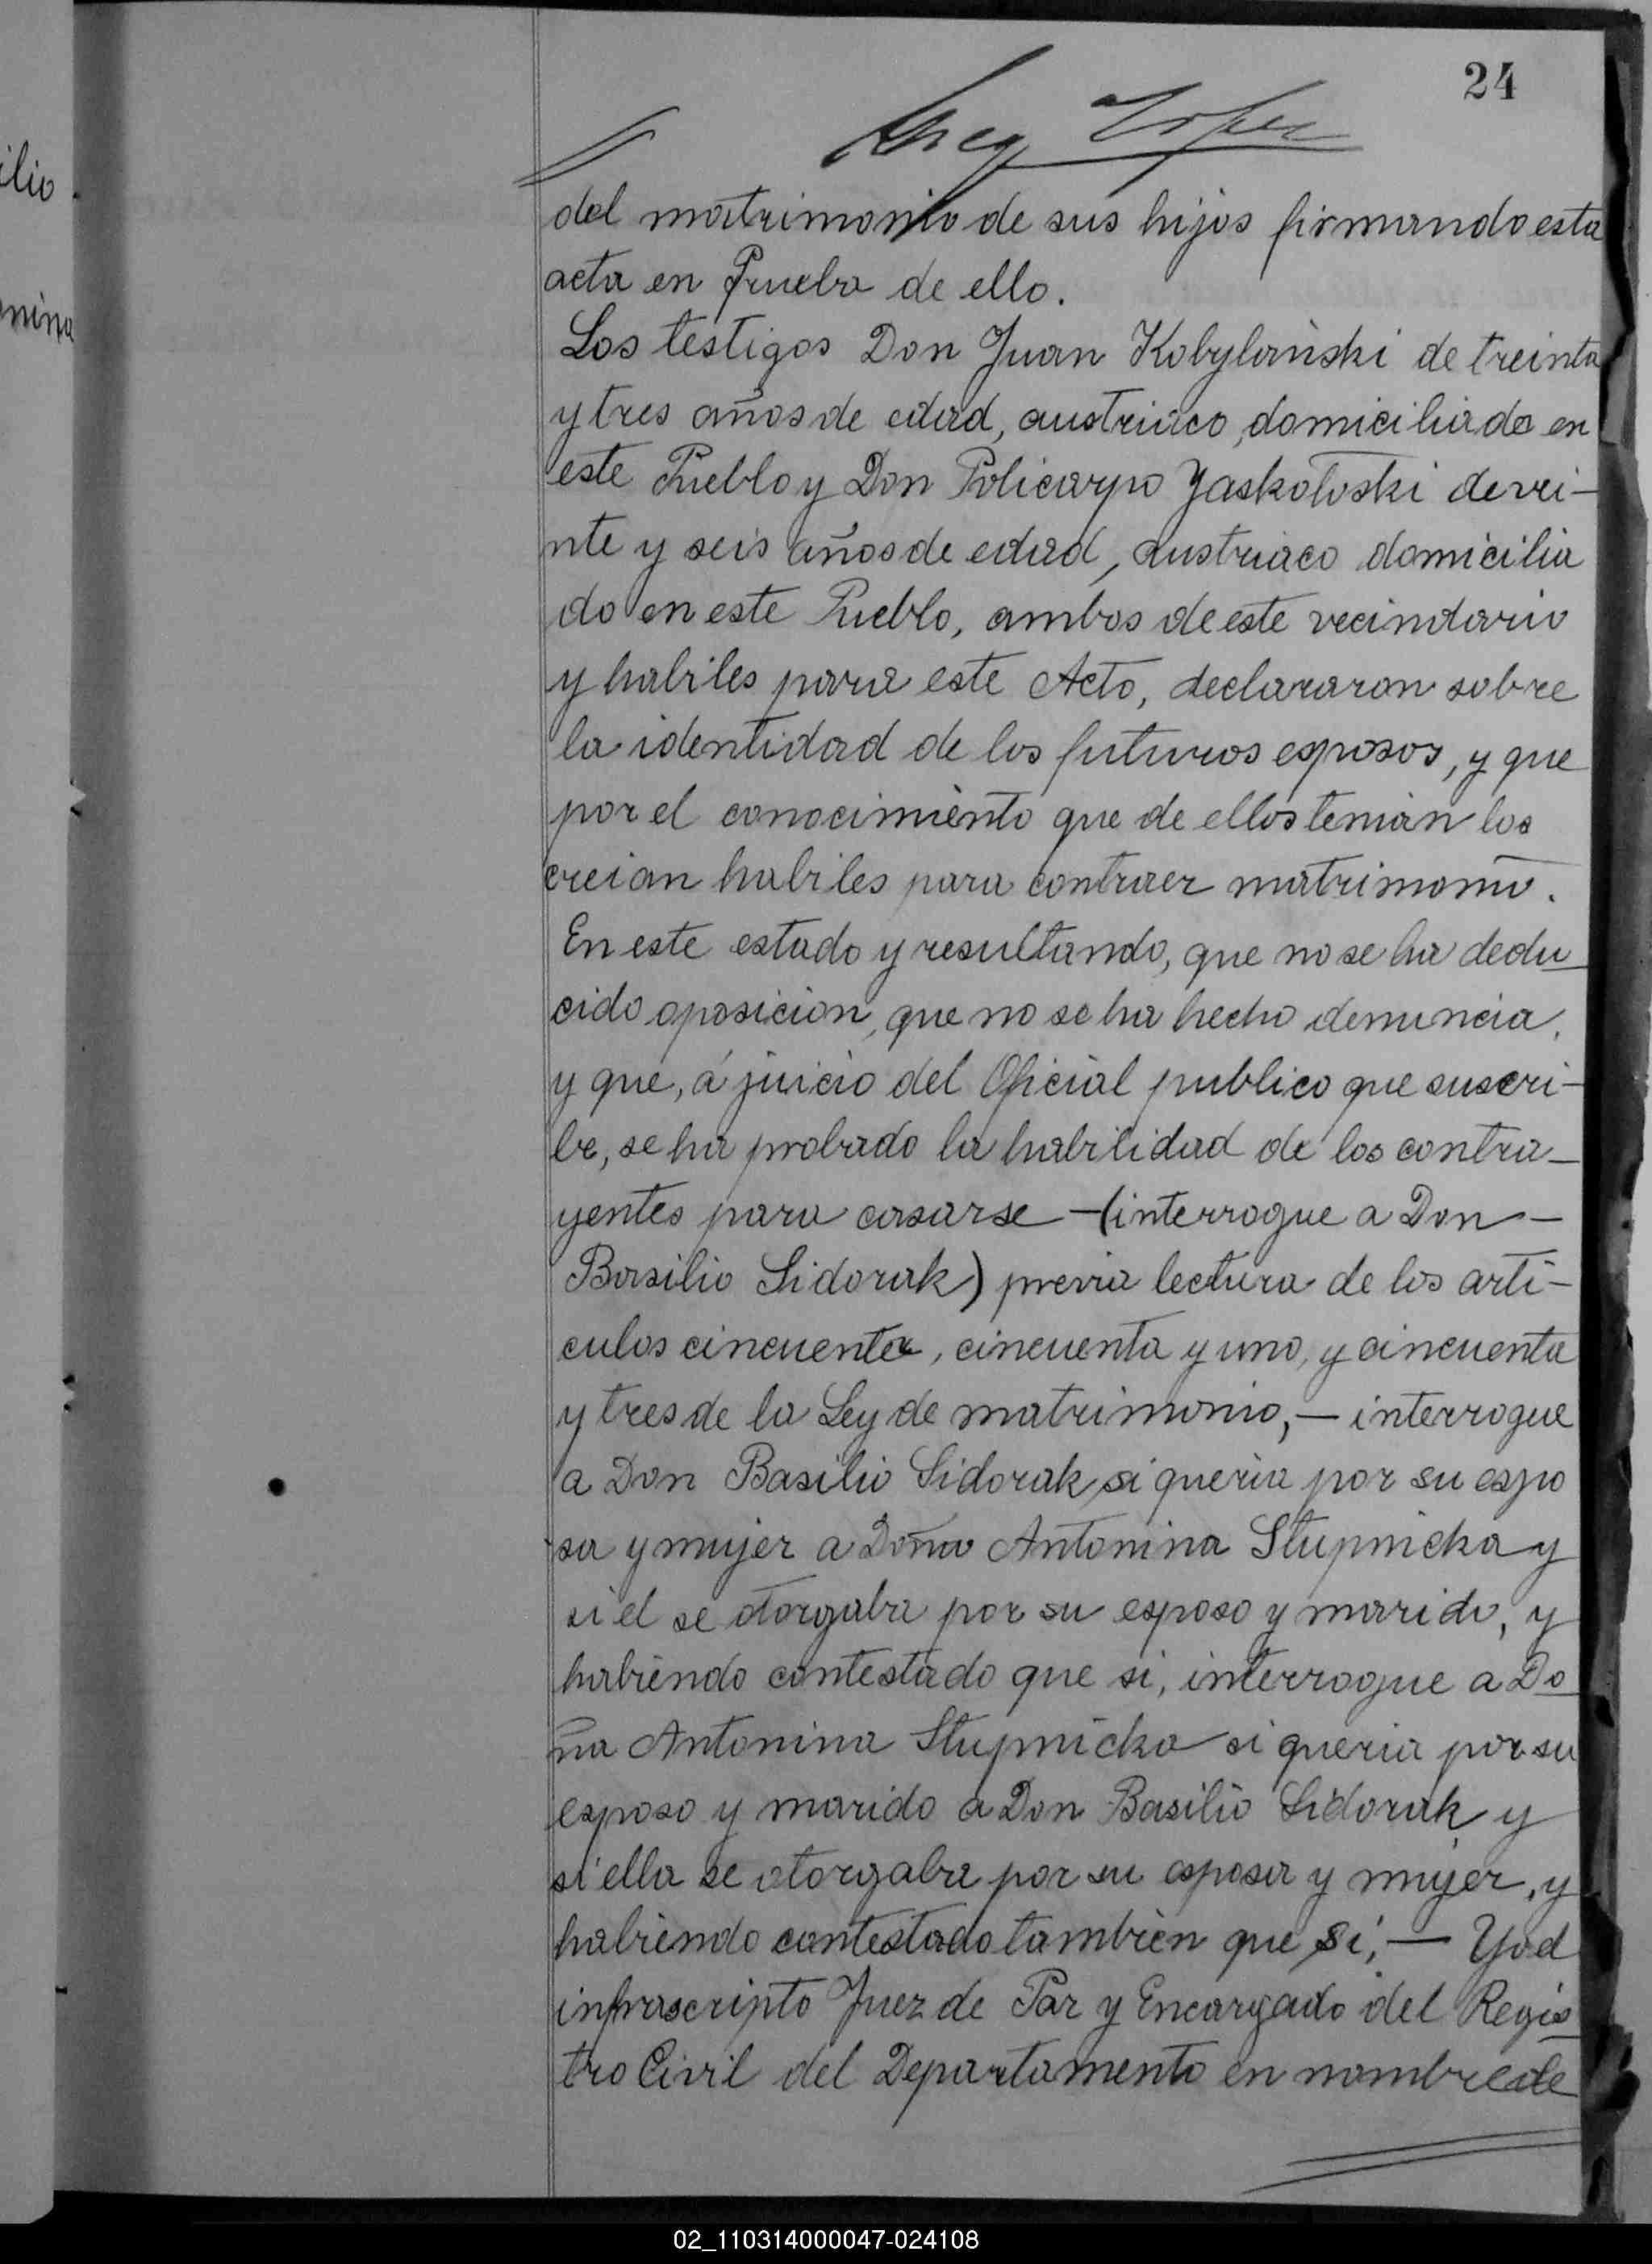 ilio
onina
24
del matrimonio de sus hijos firmando esta
acta en Prueba de ello.
Los testigos Don Juan Kobylański de treinta
y tres años de edad, austriaco, domiciliado en
este Pueblo y Don Policarpo Jaskotoski de vei-
nte y seis años de edad, austriaco domicilia
do en este Pueblo, ambos de este vecindario
y habiles para este Acto, declararon sobre
la identidad de los futuros esposos, y que
por el conocimiento que de ellos tenian los
creian habiles para contraer matrimonio.
En este estado y resultando, que no se ha dedu
cido oposicion, que no se ha hecho denuncia,
y que, á juicio del Oficial publico que suscri-
be, se ha probado la habilidad de los contra-
yentes para casarse - (interrogue a Don -
Basilio Sidorak) previa lectura de los arti-
culos cincuenta, cincuenta y uno, y cincuenta
y tres de la Ley de matrimonio, - interrogue
a Don Basilio Sidorak si queria por su espo
sa y mujer a Doña Antonina Stupnicka y
si el se otorgaba por su esposo y marido, y
habiendo contestado que si, interrogue a Do
ña Antonina Stupnicka si queria por su
esposo y marido a Don Basilio Sidorak y
si ella se otorgaba por su esposa y mujer, y
habiendo contestado tambien que si, - Yo el
infrascripto Juez de Paz y Encargado del Regis
tro Civil del Departamento en nombre de
02_110314000047-024108